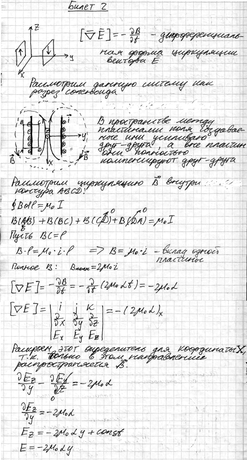 Билет 2
[∇E] = -∂B/∂t - дифференциаль-
ная форма циркуляции
вектора E
Z
Y
X
Рассмотрим данную систему как
разрез соленоида
В пространстве между
пластинами поля
друг друга, а вне пластин
компенсируют друг друга
Рассмотрим циркуляцию B внутри
контура ABCD:
∮Bdl = μ₀I
B(AB) + B(BC) + B(CD) + B(DA) = μ₀I
Пусть BC = l
B·l = μ₀·i·l => B = μ₀·i - вклад одной
пластины
Полное B: = 2μ₀i
[∇E] = -∂B/∂t = -∂/∂t (2μ₀Lt) = -2μ₀L
[∇E] = | i j k |
| ∂/∂x ∂/∂y ∂/∂z | = -(2μ₀L)ₓ
| Ex Ey Ez |
этот определитель для координаты X,
т.к. только в этом направлении
распространяется B.
∂Ez/∂y - ∂Ey/∂z = -2μ₀L
0
∂Ez/∂y = -2μ₀L
Ez = -2μ₀Ly + const
E = -2μ₀Ly